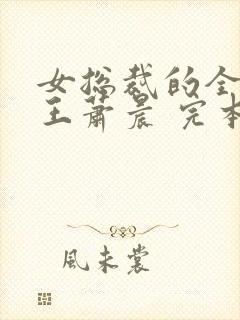 女总裁的全
王萧晨 完本
風未裳